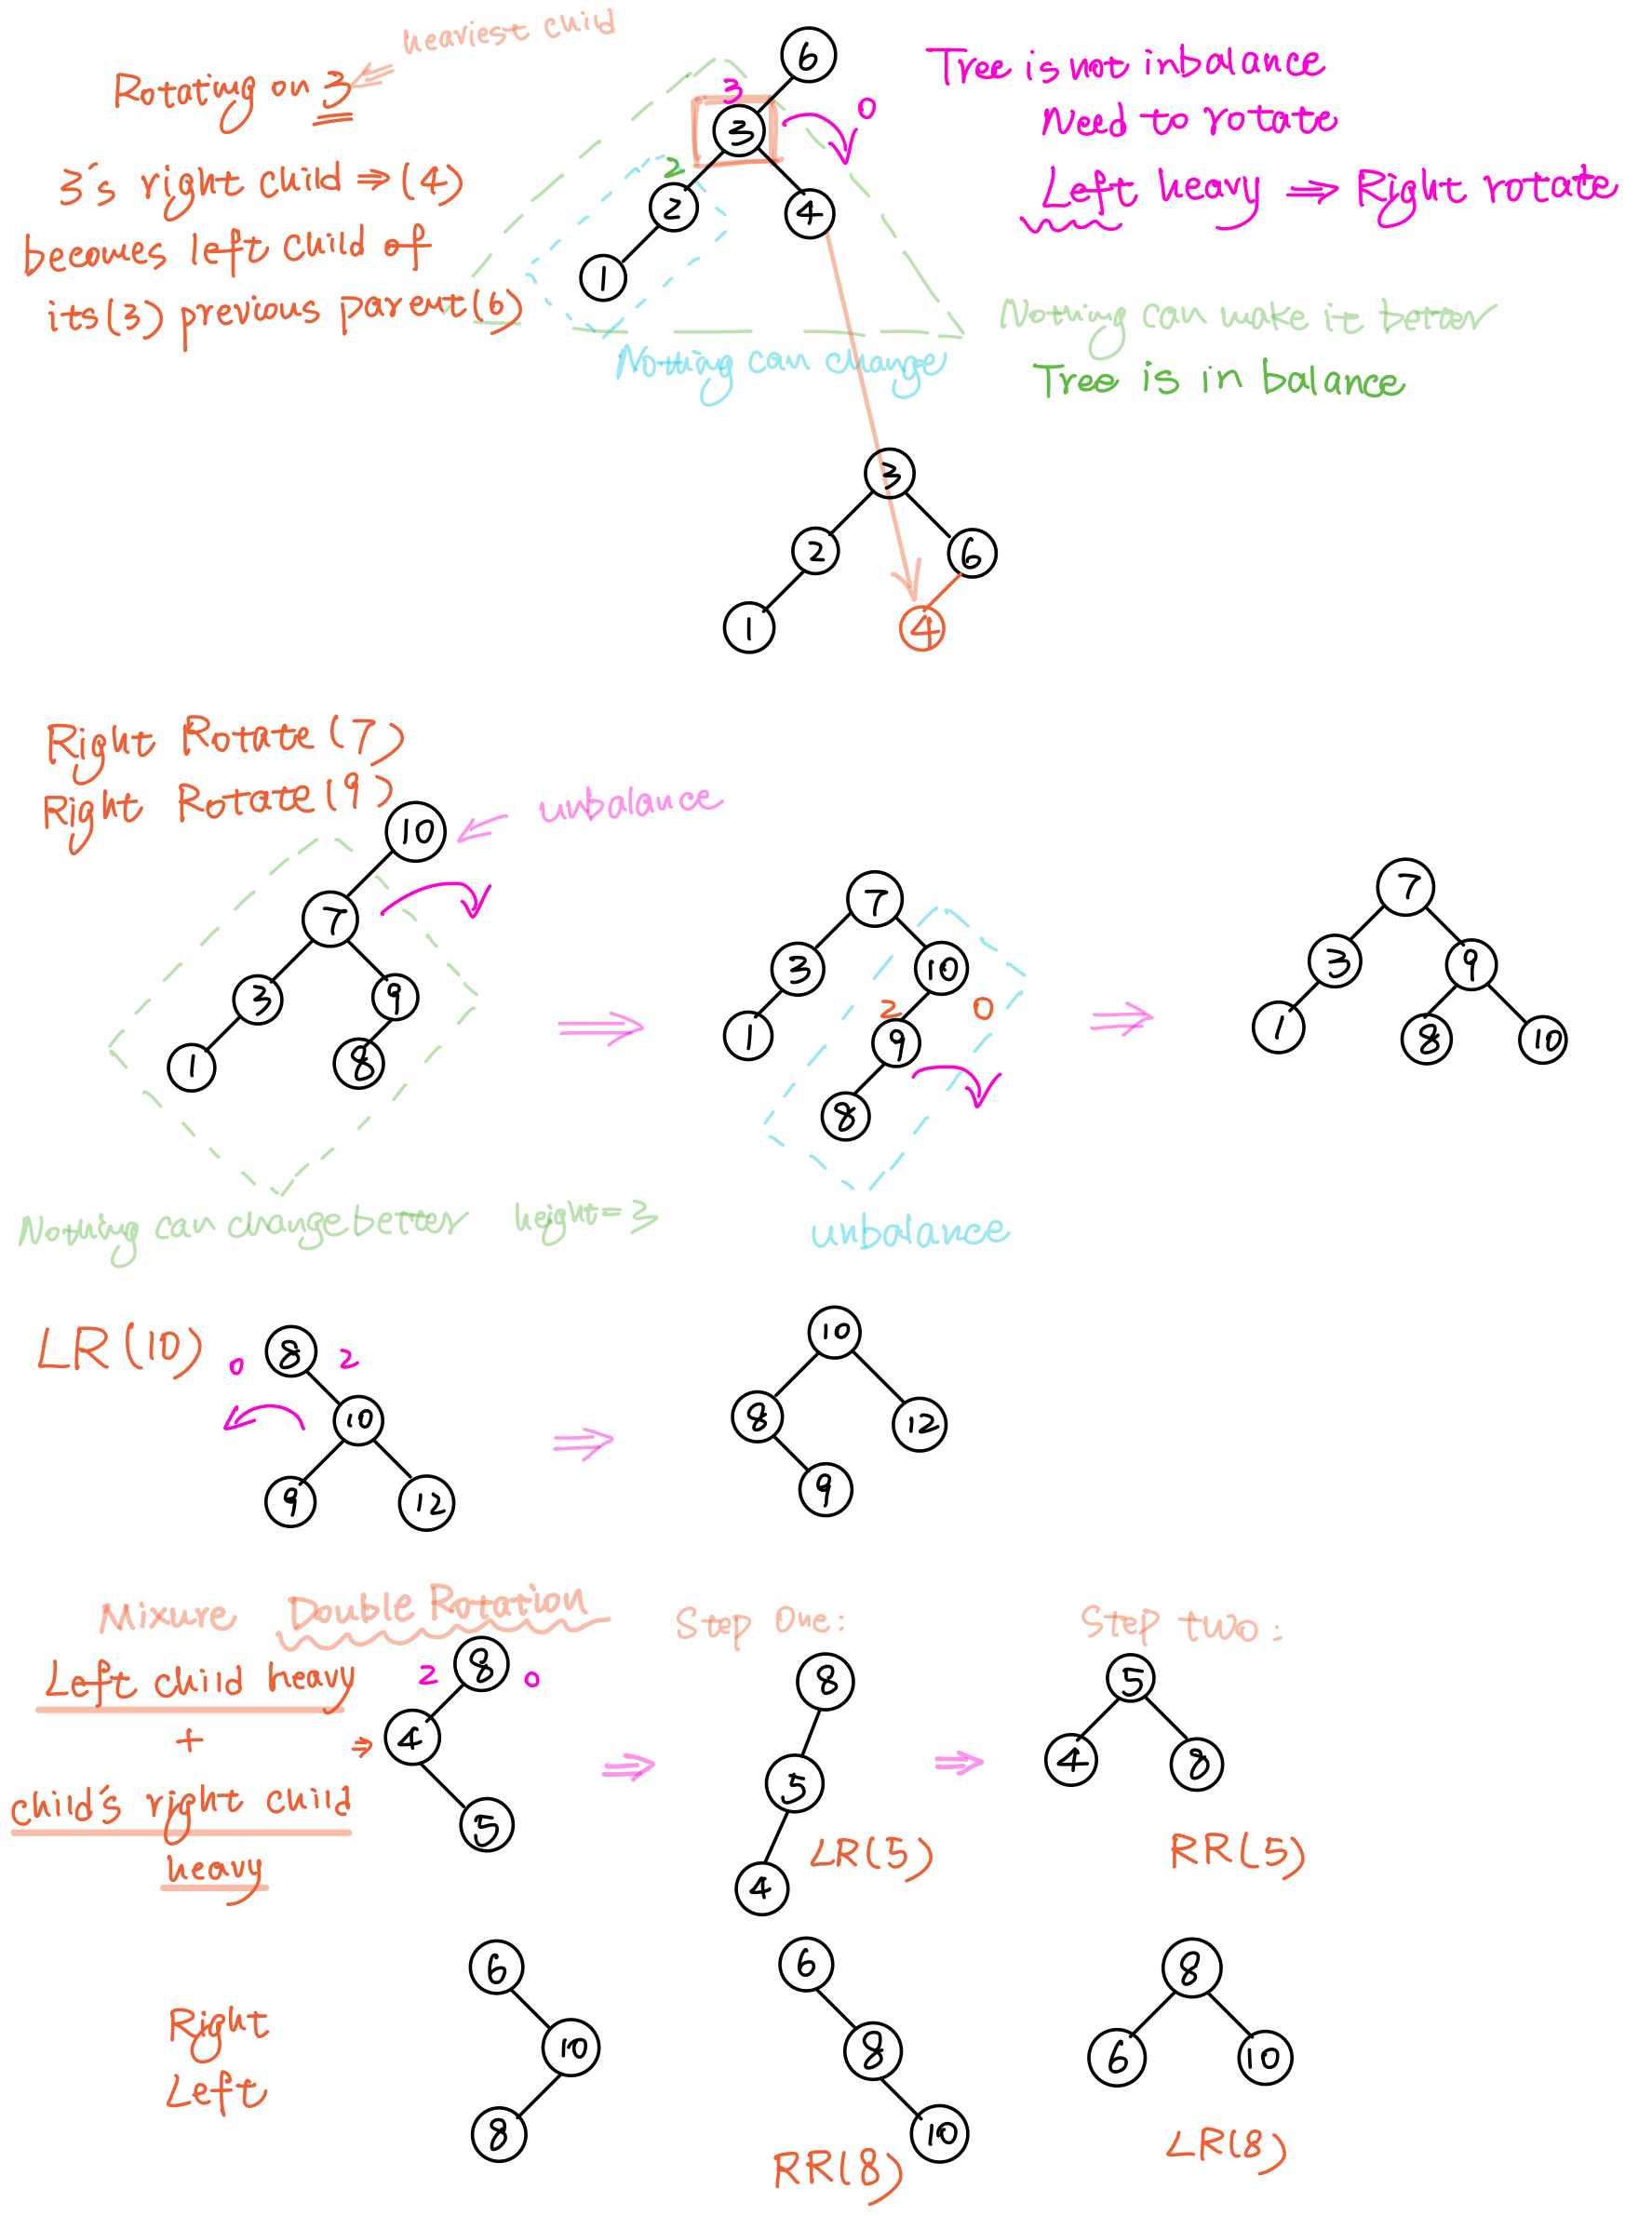 heaviest child
Rotating on 3
3's right child ⇒ (4)
becomes left child of
its(3) previous parent(6)
6
3
0
3
2
2
4
1
Tree is not inbalance
Need to rotate
Left heavy ⇒ Right rotate
Nothing can make it better
Tree is in balance
Nothing can change
3
2 6
1 4
Right Rotate (7)
Right Rotate (9)
unbalance
10
7
3 9
1 8
Nothing can change better height=3
⇒
7
3 10
2 0
1 9
8
unbalance
⇒
7
3 9
1 8 10
LR(10)
0 8 2
10
9 12
⇒
10
8 12
9
Mixure Double Rotation
Left child heavy
+
child's right child
heavy
⇒
2 8 0
4
5
⇒
Step One:
8
5
4
LR(5)
⇒
Step two:
5
4 8
RR(5)
Right
Left
6
10
8
6
8
10
RR(8)
8
6 10
LR(8)